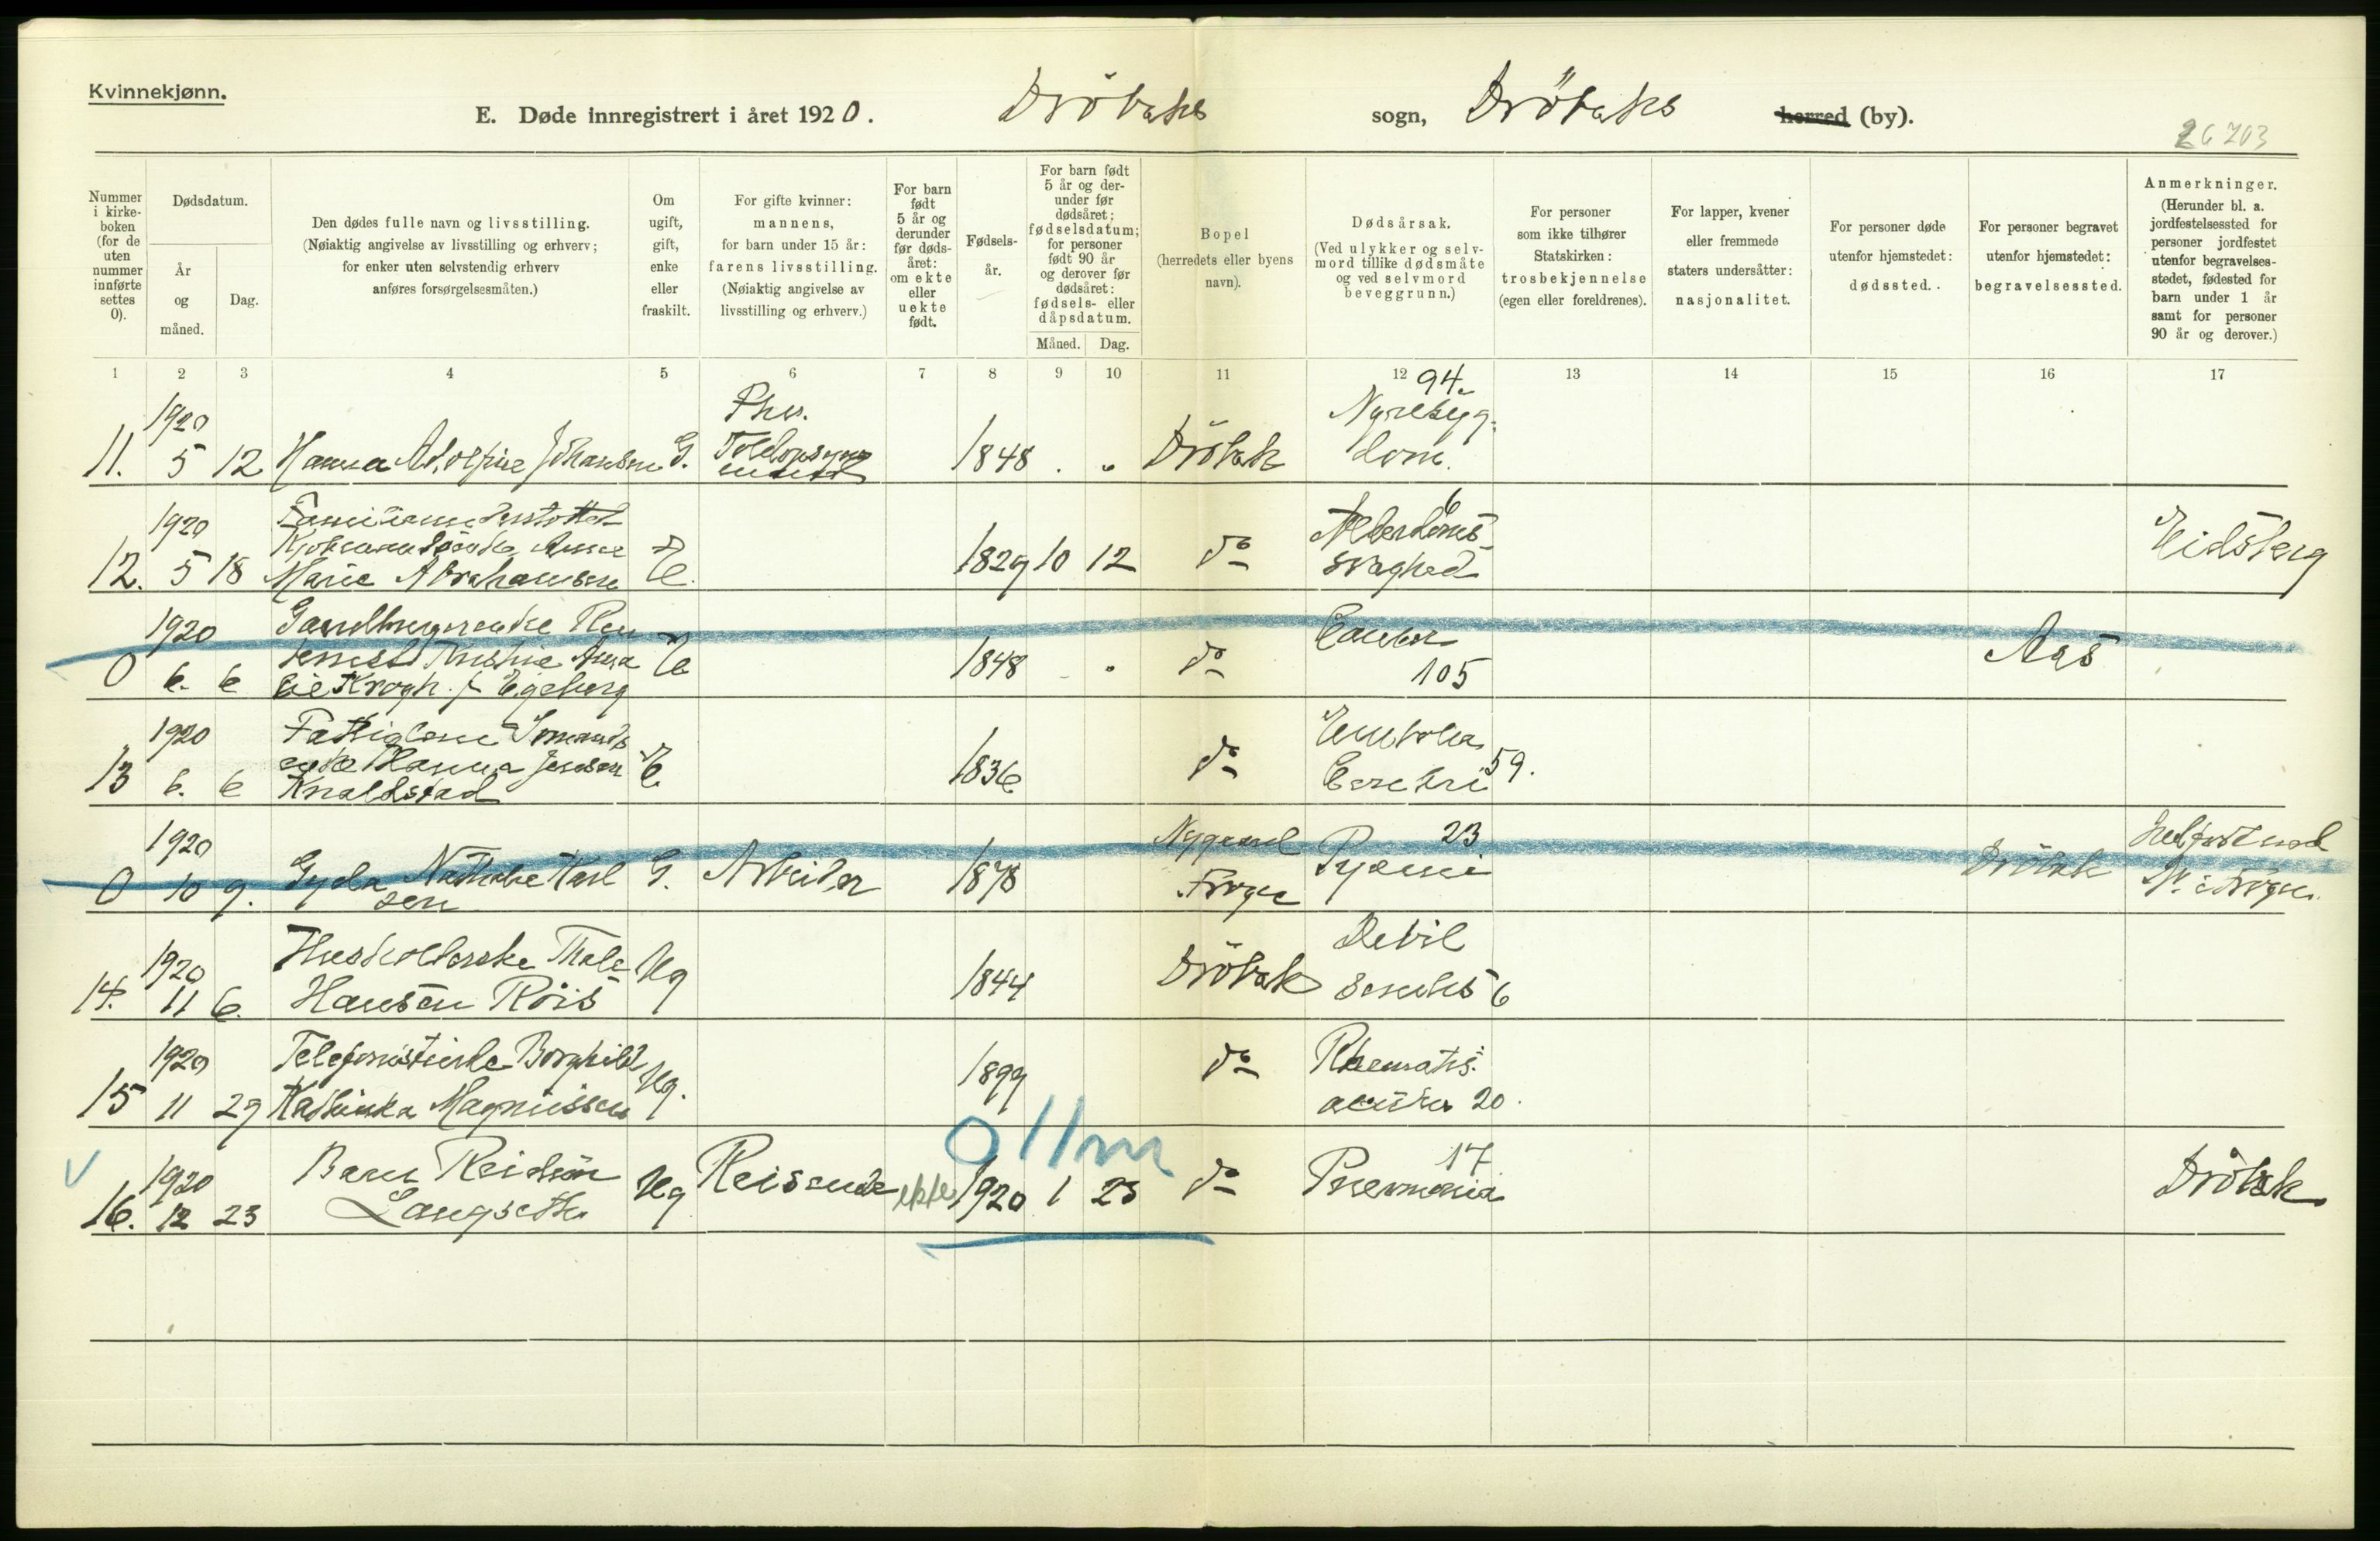 Kvinnekjønn.
E. Døde innregistrert i året 1920. Drøbaks sogn, Drøbaks herred (by).
26703
Nummer i kirkeboken (for de uten nummer innførte settes 0).
Dødsdatum.
År og måned.
Dag.
Den dødes fulle navn og livsstilling.
(Nøiaktig angivelse av livsstilling og erhverv;
for enker uten selvstendig erhverv
anføres forsørgelsesmåten.)
Om ugift, gift, enke eller fraskilt.
For gifte kvinner:
mannens,
for barn under 15 år:
farens livsstilling.
(Nøiaktig angivelse av
livsstilling og erhverv.)
For barn født 5 år og derunder før dødsåret: om ekte eller uekte født.
Fødselsår.
For barn født 5 år og derunder før dødsåret: fødselsdatum; for personer født 90 år og derover før dødsåret: fødsels- eller dåpsdatum.
Måned. Dag.
Bopel
(herredets eller byens
navn).
Dødsårsak.
(Ved ulykker og selvmord tillike dødsmåte
og ved selvmord
beveggrunn.)
For personer
som ikke tilhører
Statskirken:
trosbekjennelse
(egen eller foreldrenes).
For lapper, kvener
eller fremmede
staters undersåtter:
nasjonalitet.
For personer døde
utenfor hjemstedet:
dødssted.
For personer begravet
utenfor hjemstedet:
begravelsessted.
Anmerkninger.
(Herunder bl. a.
jordfestelsessted for
personer jordfestet
utenfor begravelsesstedet, fødested for
barn under 1 år
samt for personer
90 år og derover.)
1 2 3 4 5 6 7 8 9 10 11 12 13 14 15 16 17
1920 94
11. 5 12 Hanna Adolfine Johansen G. 1848 Drøbak Nyresygdom
1920 6
12. 5 18 Anne Marie Abrahamsen E. 1829 10 12 do Alderdomssvaghed Eidsberg
1920
0 6. 6 Krogh f. Egeberg E 1848 do Cancer 105 Aas
1920
13 6. 6 Hanna Jensen E. 1836 do Embolia Cerebri 59.
1920 23
0 10 9. Gyda Nathalie Karlsen G. Arbeider 1878 Nygaard Frogn Pyæmi Drøbak
1920
14. 11 6. Husholderske Thale Hansen Röis Ug 1844 Drøbak Debil senilis 6
1920
15 11 29 Telefonistinde Borghild Kathinka Magnussen Ug. 1899 do Rheumatis. acutus 20.
0 11 m
1920 17
16. 12 23 Barn Reidun Langseth Ug Reisende ekte 1920 1 23 do Pneumonia Drøbak